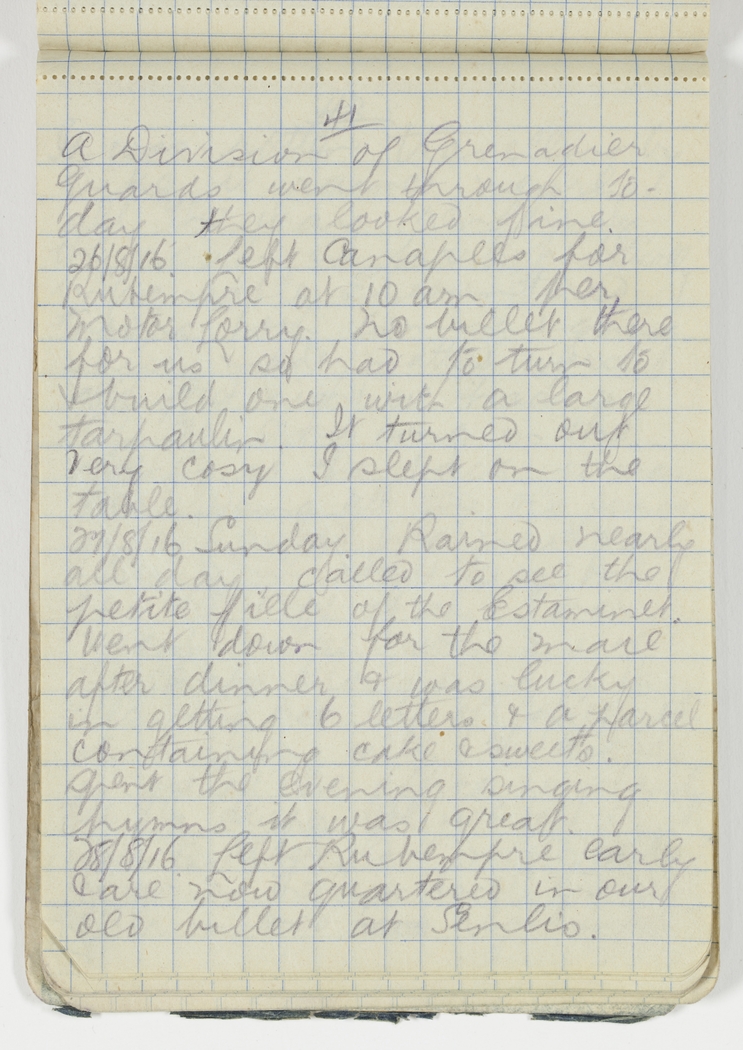 41
A Division of Grenadier
Guards went through to-
day they looked fine.
26/8/16. Left Canaples for
Rubempre at 10 am per
Motor Lorry. No billet there
for us so had to turn to
& build one with a large
tarpaulin. It turned out
very cosy I slept on the
table.
27/8/16 Sunday Rained nearly
all day called to see the
petite fille of the Estaminet.
Went down for the mail
after dinner & was lucky
in getting 6 letters & a parcel
containing cake & sweets.
Spent the evening singing
hymns it was great.
28/8/16 Left Rubempre early
& are now quartered in our
old billet at Senlis.